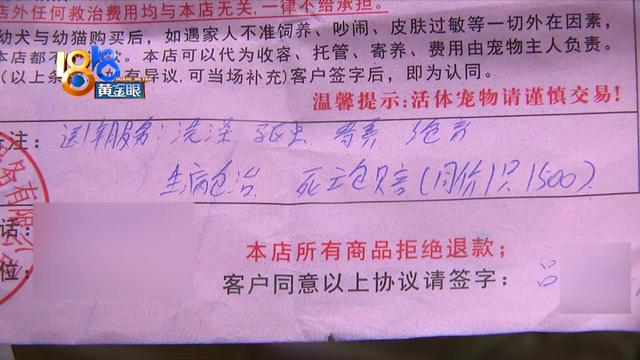 店外任何救治费用均与本店无关,一律不给承担。
幼犬与幼猫购买后,如遇家人不准饲养、吵闹、皮肤过敏等一切外在因素,
本店都不 款。本店可以代为收容、托管、寄养、费用由宠物主人负责。
(以上条 有异议,可当场补充)客户签字后,即为认同。
1818
黄金眼
温馨提示:活体宠物请谨慎交易!
注: 送1年服务: 洗澡 驱虫 寄养
生病包治 死亡包赔(同价1只1500)
务有限公
话:
位:
本店所有商品拒绝退款;
客户同意以上协议请签字: 吕